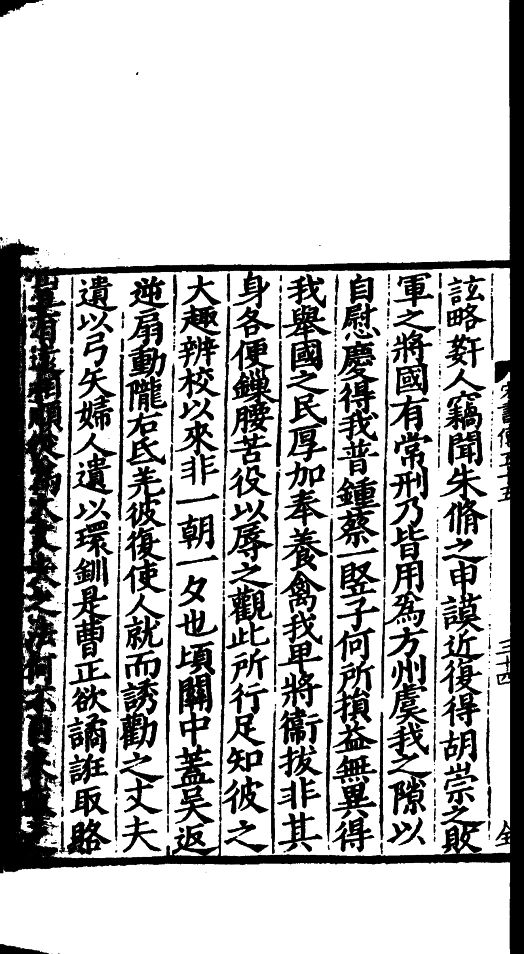 宋書傳五十五
三十四
詃略姧人竊聞朱脩之申謨近復得胡崇之敗
軍之將國有常刑乃皆用為方州虞我之隙以
自慰慶得我普鍾蔡一竪子何所損益無異得
我舉國之民厚加奉養禽我卑將衛拔非其
身各便鏁腰苦役以辱之觀此所行足知彼之
大趣辨校以來非一朝一夕也頃關中蓋吳返
逆扇動隴右氐羌彼復使人就而誘勸之丈夫
遺以弓矢婦人遺以環釧是曹正欲譎誑取賂
豈有遠相順從為大丈夫之法何不自來